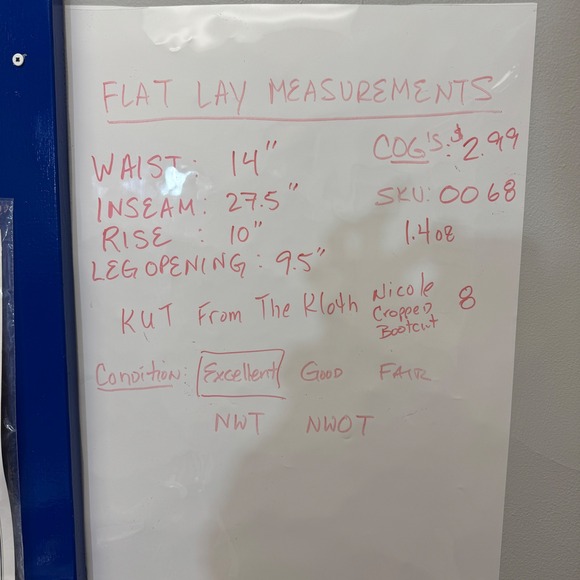 FLAT LAY MEASUREMENTS
WAIST: 14"
COG'S: $2.99
INSEAM: 27.5"
SKU: 0068
RISE : 10"
1.4oz
LEG OPENING: 9.5"
KUT From The Kloth Nicole Cropped Bootcut 8
Condition: Excellent Good FAIR
NWT NWOT